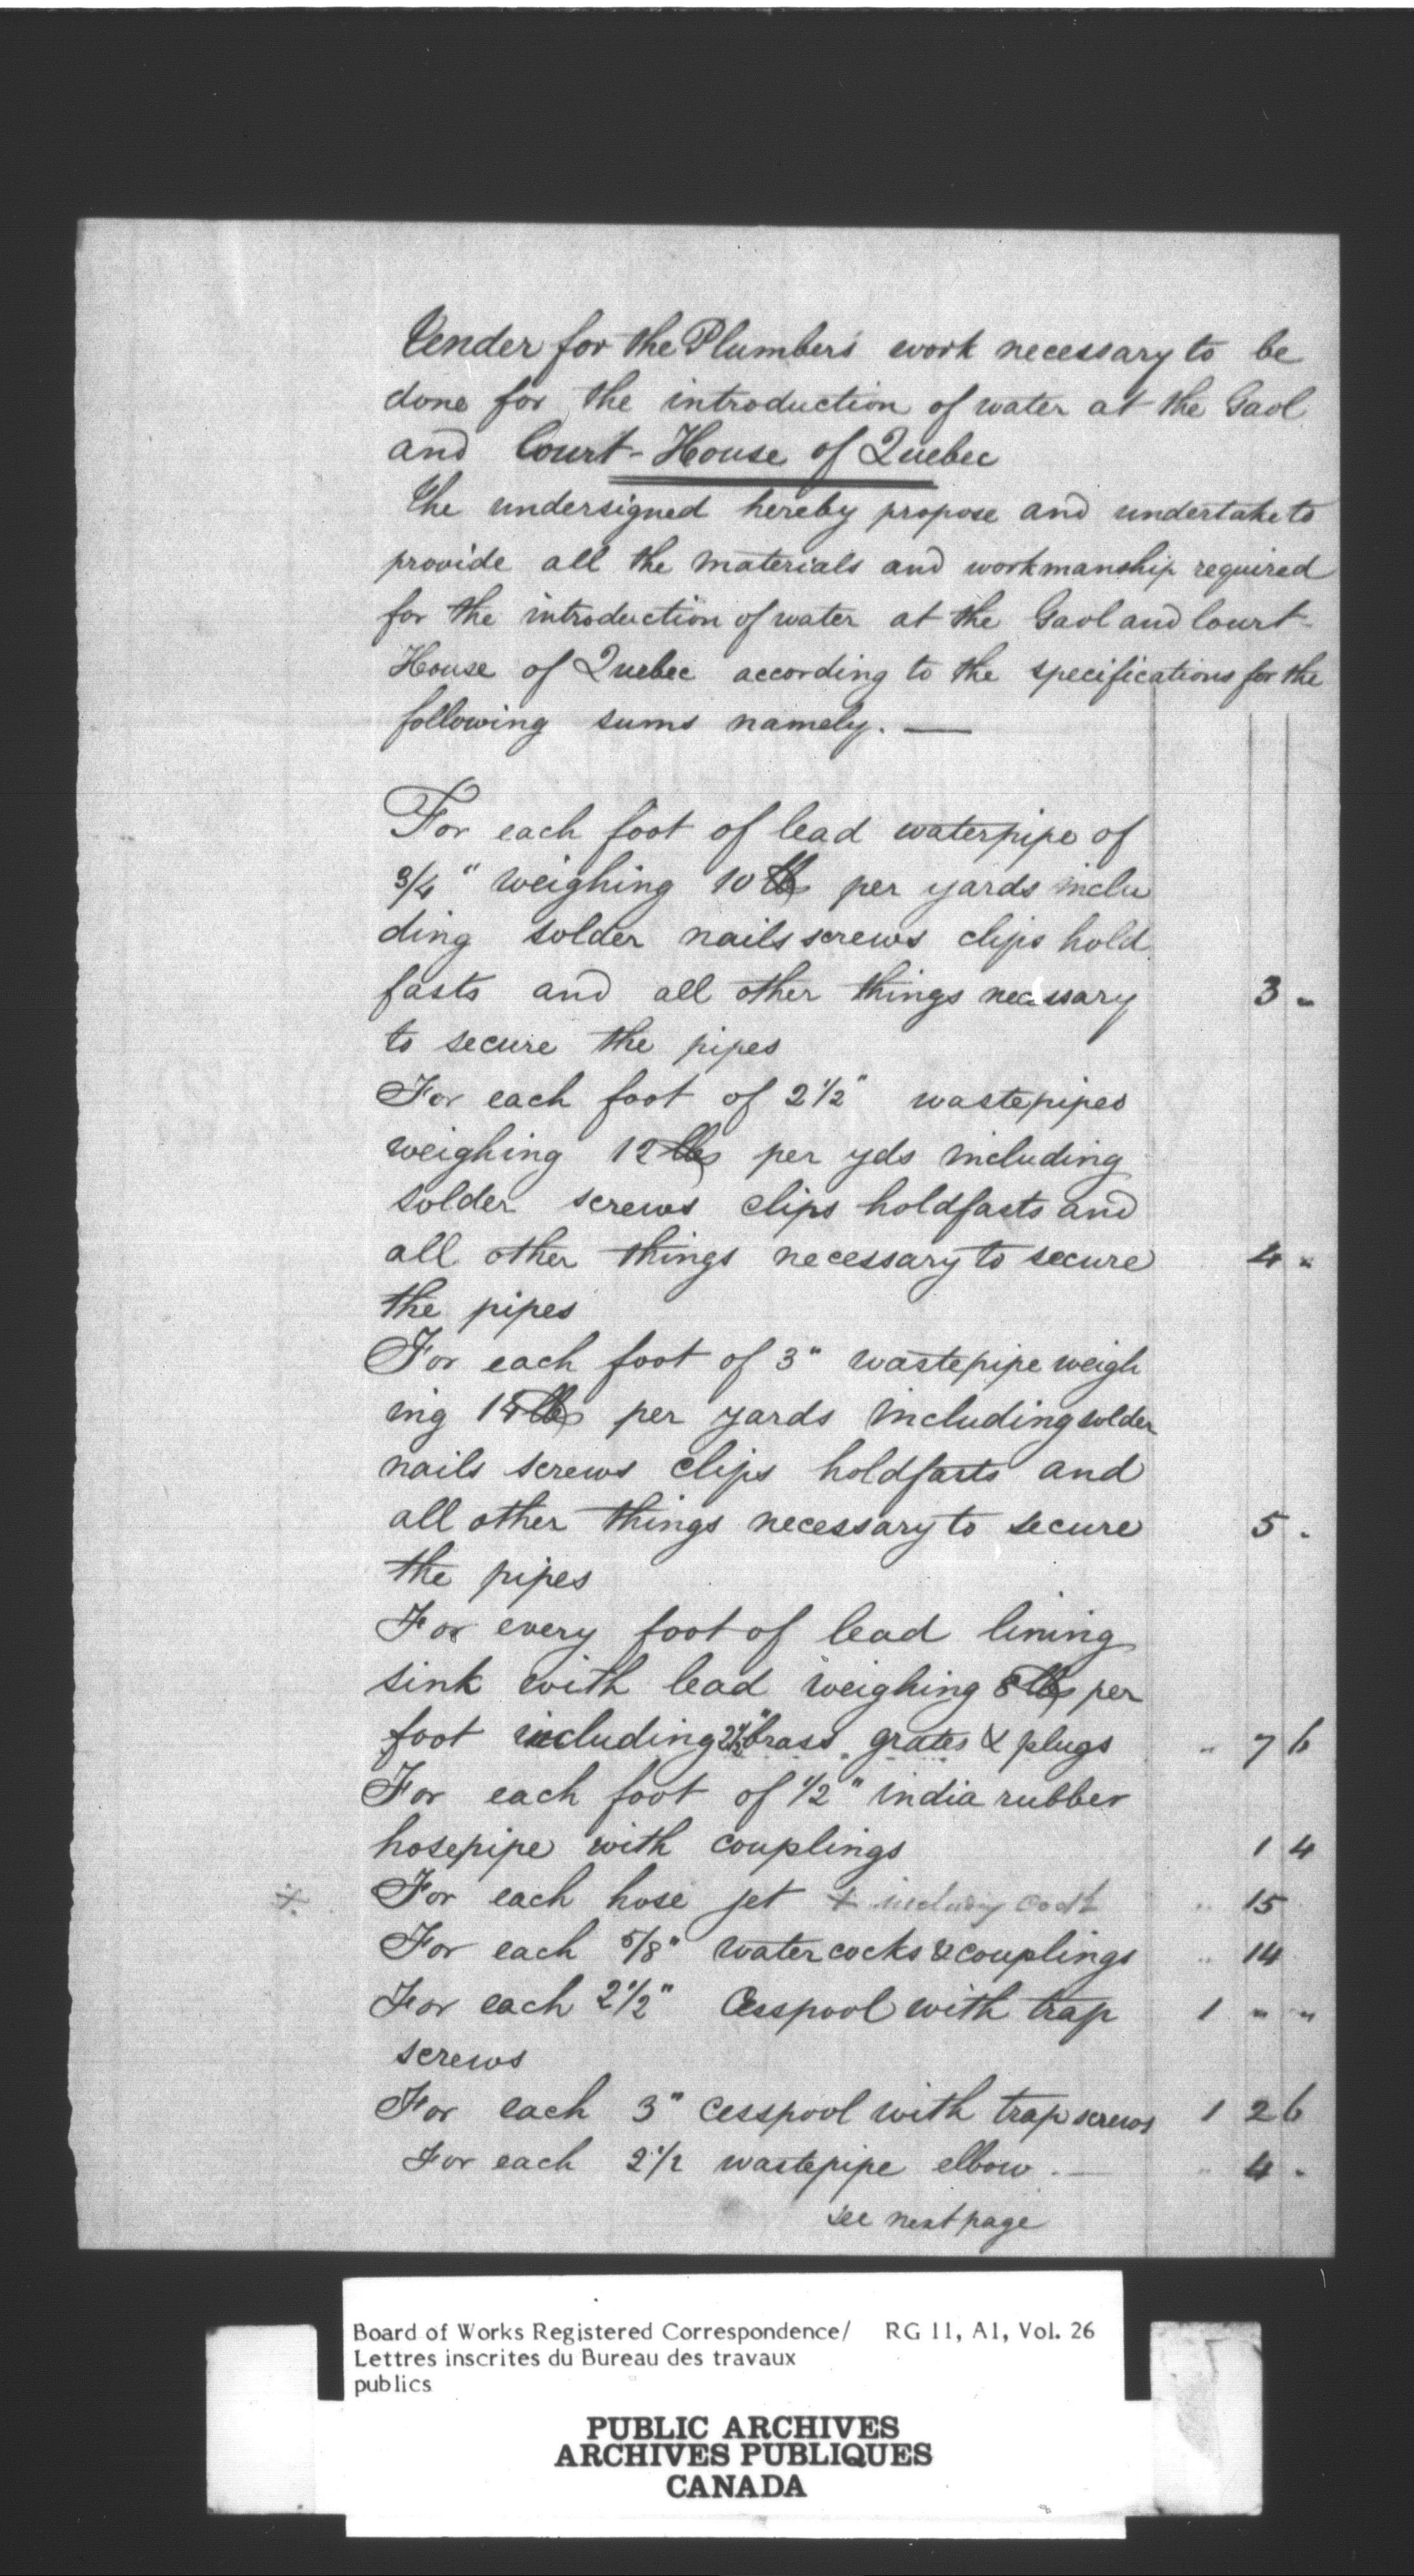 Tender for the Plumber's work necessary to be
done for the introduction of water at the Gaol
and Court-House of Quebec
The undersigned hereby propose and undertake to
provide all the materials and workmanship required
for the introduction of water at the Gaol and Court-
House of Quebec according to the specifications for the
following sums namely. —
For each foot of lead waterpipe of
3/4" weighing 10 lb per yards inclu
ding solder nails screws clips hold
fasts and all other things necessary 3 -
to secure the pipes
For each foot of 2 1/2" wastepipes
weighing 12 lbs per yds including
solder screws clips holdfasts and
all other things necessary to secure 4 "
the pipes
For each foot of 3" wastepipe weigh
ing lbs per yards including solder
nails screws clips holdfasts and
all other things necessary to secure 5 -
the pipes
For every foot of lead lining
sink with lead weighing 8 lb per
foot including 2 1/2" brass grates & plugs " 7 6
For each foot of 1/2" india rubber
hosepipe with couplings 1 4
For each hose jet + including " 15
For each 5/8" watercocks & couplings " 14
For each 2 1/2" Cesspool with trap 1 " "
screws
For each 3" cesspool with trap screws 1 2 6
For each 2 1/2 wastepipe elbow. — " 4 -
see next page
Board of Works Registered Correspondence/ RG 11, A1, Vol. 26
Lettres inscrites du Bureau des travaux
publics
PUBLIC ARCHIVES
ARCHIVES PUBLIQUES
CANADA